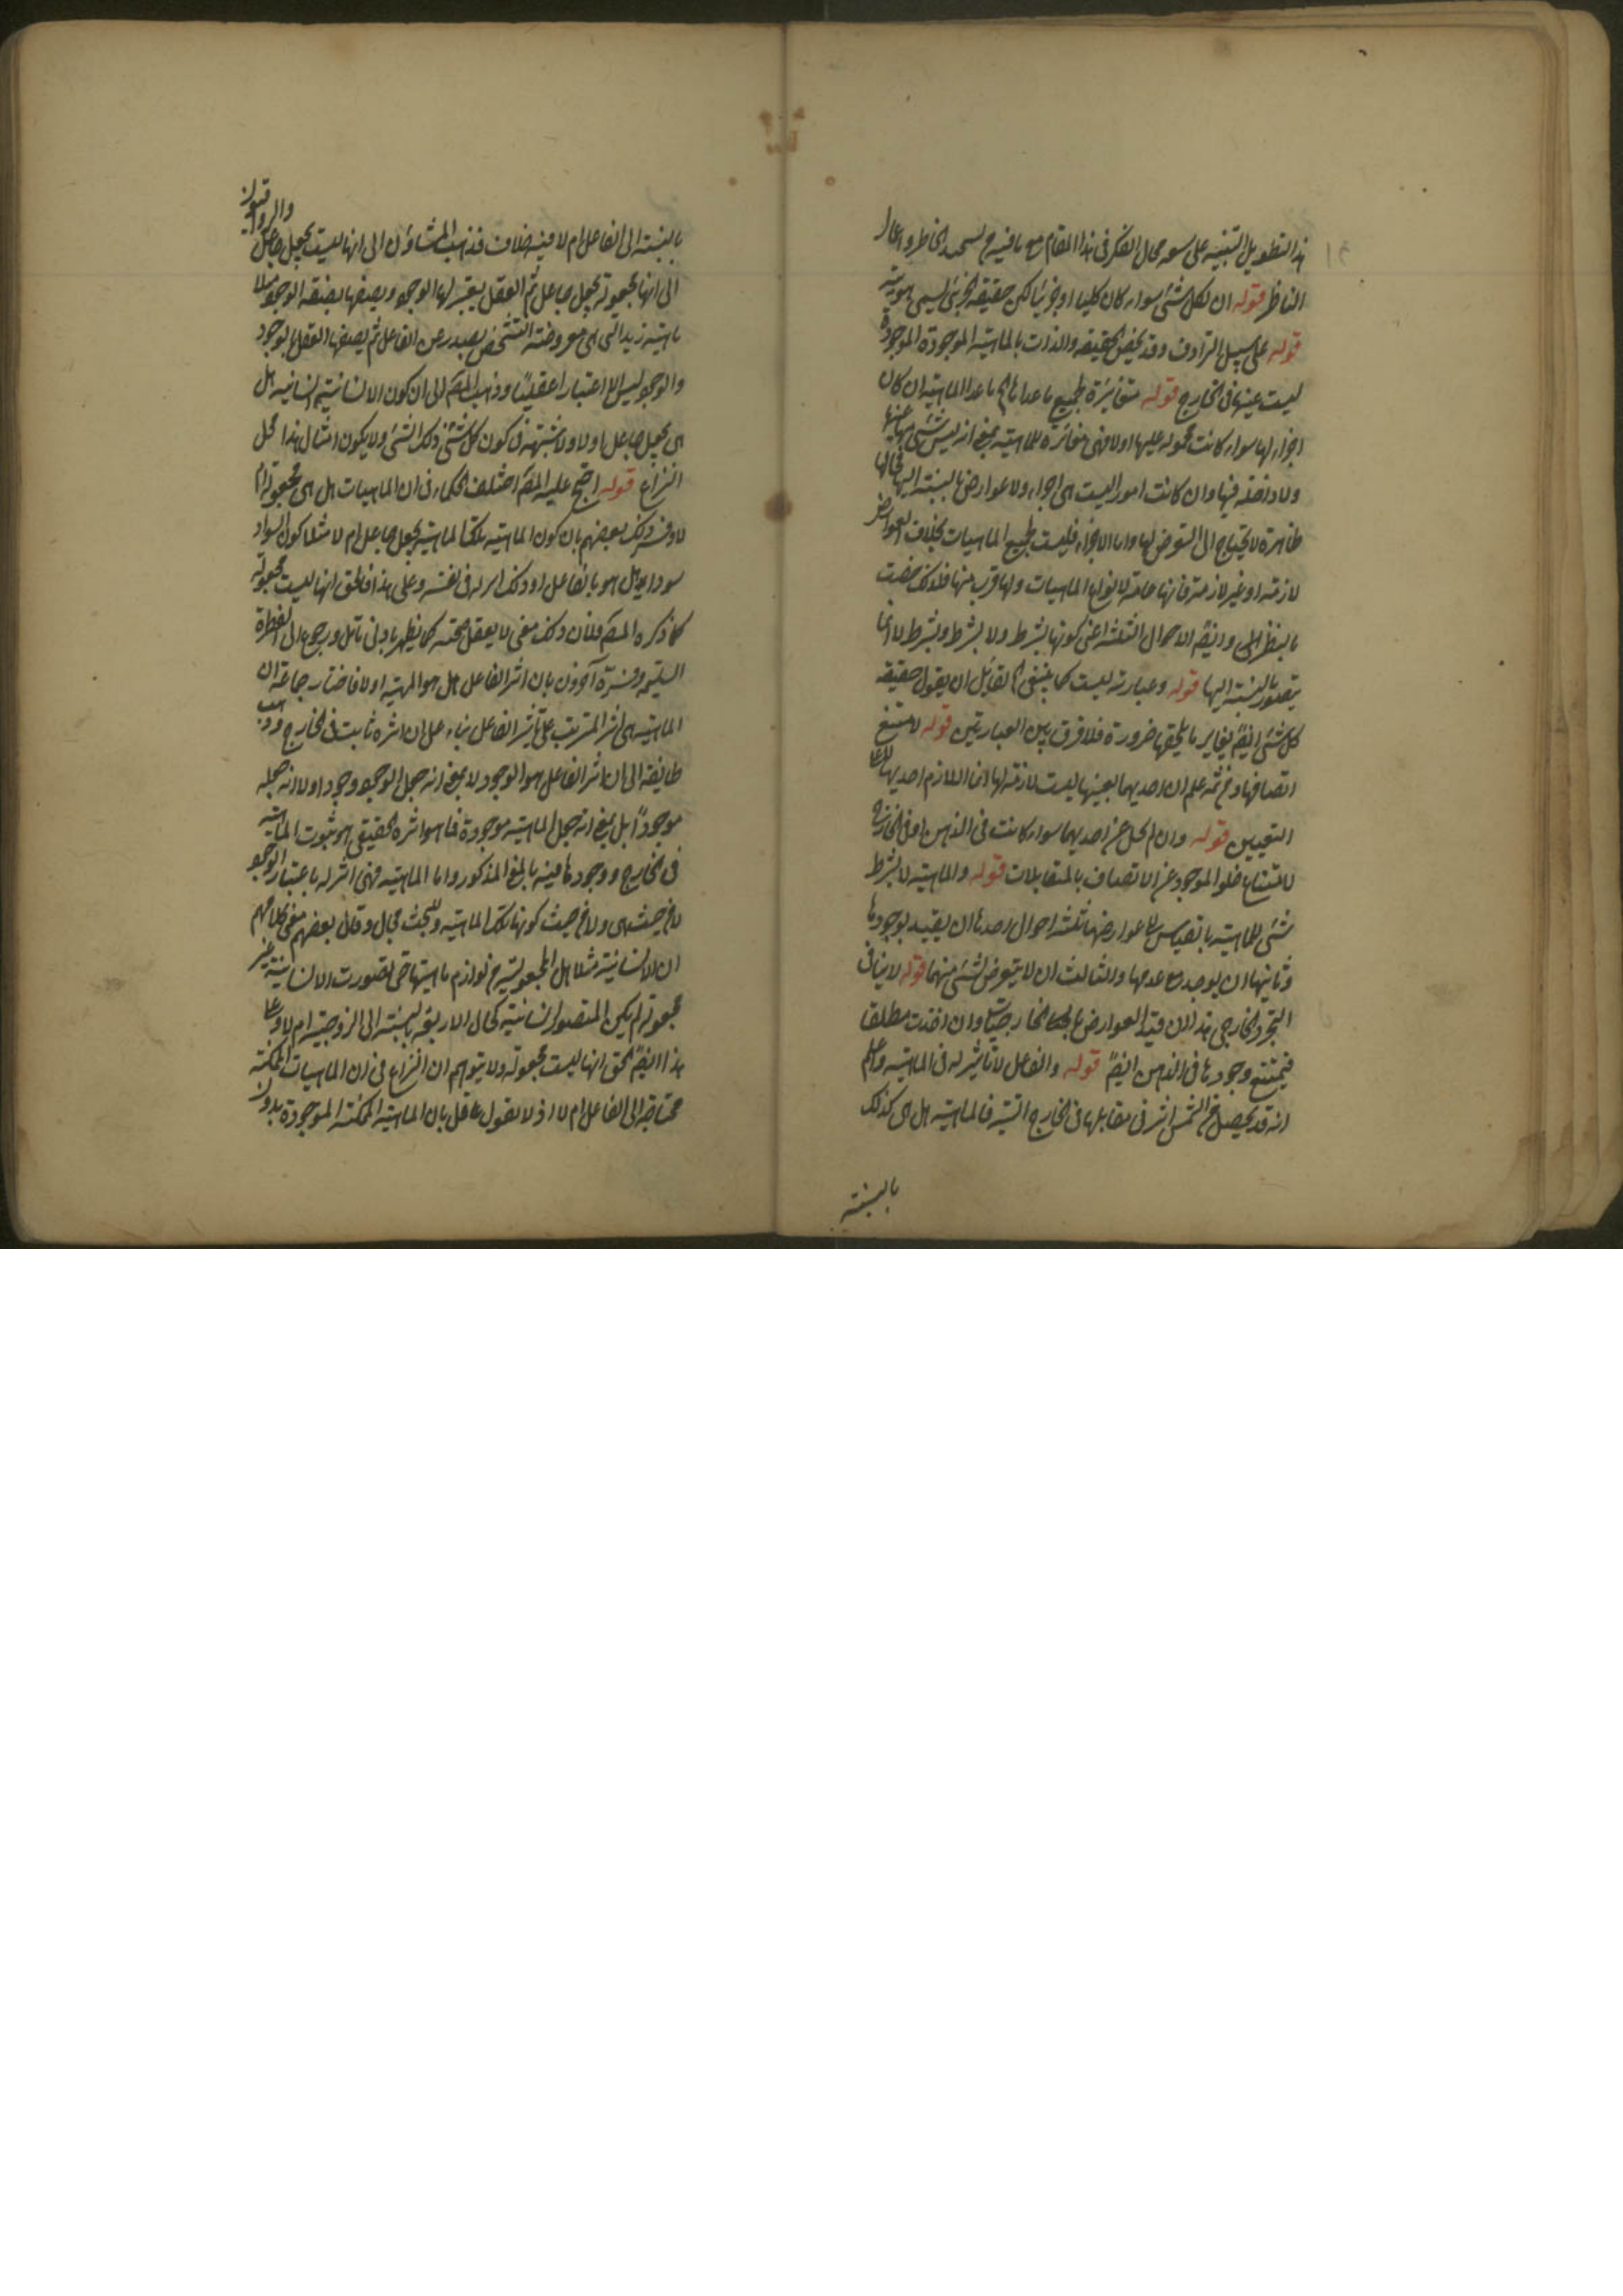 هذا التطويل التنبيه على سعة مجال الفكر فى هذا المقام مع ما فيه من تشحيذ الخاطر واعمال
الناظر قوله ان لكل شئ سواء كان كليا او جزئيا لكن حقيقة الجزئى يسمى هوية
قوله على سبيل الترادف وقد يخص الحقيقة والذات بالماهية الموجودة الموجودة
ليست عينها فى الخارج قوله متغايرة لجميع ما عداها ما عدا الماهية ان كان
اجزاء لها سواء كانت محمولة عليها اولا فهى مغائرة للماهية بمعنى انه ليس شئ منها عينها
ولا داخلة فيها وان كانت امورا ليست هى اجزاء ولا عوارض بالنسبة اليها فحالها
ظاهرة لا تحتاج الى التعرض لها واما الاجزاء فليست لجميع الماهيات بخلاف العوارض
لازمة او غير لازمة فانها عامة لانواع الماهيات ولها قرب منها فلذلك خصت
بالنظر وايضا الاحوال الثلثة اعنى كونها بشرط ولا بشرط وبشرط لا انما
يتصور بالنسبة اليها قوله وعبارته ليست كما ينبغى لقائل ان يقول حقيقة
كل شئ ايضا يغاير ما يلحقها ضرورة فلا فرق بين العبارتين قوله لامتنع
اتصافها ومن ثمه علم ان احديهما بعينها ليست لازمة لها انما اللازم احديهما لا على
التعيين قوله وان لم يخل عن احديهما سواء كانت فى الذهن او فى الخارج
لامتناع خلو الموجود عن الاتصاف بالمتقابلات قوله والماهية لا بشرط
شئ للماهية بالقياس الى عوارضها ثلثة احوال احدها ان يقيد بوجودها
وثانيها ان يوجد مع عدمها والثالث ان لا يتعرض لشئ منهما قوله لا ينافى
التجرد الخارجى هذا ان قيد العوارض بالخارجيات وان اخذت مطلقا
فيمتنع وجودها فى الذهن ايضا قوله والفاعل لا تأثير له فى الماهية واعلم
انه قد يحصل من الشمس اثر فى مقابلها فى الخارج فالماهية هل هى كذلك
بالنسبة
بالنسبة الى الفاعل ام لا فيه خلاف فذهب المشاؤن الى انها ليست بجعل جاعل
والرواقيون
الى انها مجعولة بجعل جاعل ثم العقل يعتبر لها الوجود ويصفها بصفة الوجود مثلا
ماهية زيد التى هى معروضة التشخص يصدر عن الفاعل ثم يصفها العقل بالوجود
والوجود ليس الا اعتبارا عقليا وذهب المص الى ان كون الانسانية انسانية هل
هى بجعل جاعل اولا ولا شبهة فى كون كل شئ ذلك الشئ ولا يكون امثال هذا محل
النزاع قوله احتج عليه المص اختلف الحكماء فى ان الماهيات هل هى مجعولة ام
لا وفسر ذلك بعضهم بان كون الماهية تلك الماهية بجعل جاعل ام لا مثلا كون السواد
سوادا هل هو بالفاعل او ذلك امر له فى نفسه وعلى هذا فالحق انها ليست مجعولة
كما ذكره المص فان ذلك معنى لا يعقل صحته كما يظهر بادنى تأمل ورجوع الى الفطرة
السليمة وفسره آخرون بان اثر الفاعل هل هو المهية اولا فاختار جماعة ان
الماهية هى اثر المترتب على تأثير الفاعل بناء على ان اثره ثابت فى الخارج وذهب
طائفة الى ان اثر الفاعل هو الوجود لا بمعنى انه جعل الوجود وجودا ولا انه جعله
موجودا بل بمعنى انه جعل الماهية موجودة فما هو اثره الحقيقى هو ثبوت الماهية
فى الخارج ووجودها فيه بالمعنى المذكور واما الماهية فهى اثر له باعتبار الوجود
لا من حيث هى ولا من حيث كونها تلك الماهية وللبحث مجال وقال بعضهم معنى كلامهم
ان الانسانية مثلا هل المجعولية من لوازم ماهيتها حتى لو تصورت الانسانية غير
مجعولة لم يكن المتصور انسانية كحال الاربعة بالنسبة الى الزوجية ام لا وعلى
هذا ايضا الحق انها ليست مجعولة ولا يتوهم ان النزاع فى ان الماهيات الممكنة
محتاجة الى الفاعل ام لا اذ لا يقول عاقل بان الماهية الممكنة الموجودة بدون